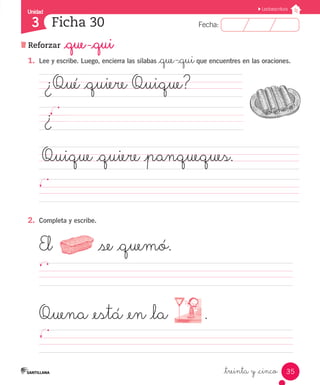 Lectoescritura
Unidad
3 Ficha 30
Fecha:
Reforzar que-qui
1. Lee y escribe. Luego, encierra las sílabas que-qui que encuentres en las oraciones.
¿Qué quiere Quique?
¿
Quique quiere panqueques.
2. Completa y escribe.
El se quemó.
Quena está en la .
SANTILLANA
treinta y cinco 35